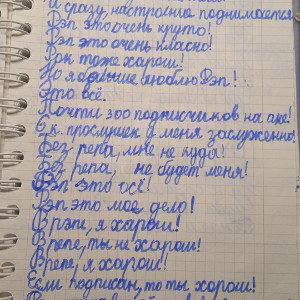 И сразу, настроение поднимается
Рэп это очень круто!
Рэп это очень класно!
Рок тоже харош!
Но я больше люблю Рэп!
Это всё.
Почти 300 подписчиков на аке!
6 к. прослушек у меня заслуженно!
Без репа, мне не куда!
Без репа, не будет меня!
Рэп это всё!
Рэп это моё дело!
В рэпе, я хорош!
В репе, ты не харош!
В репе, я харош!
Если подписан, то ты харош!